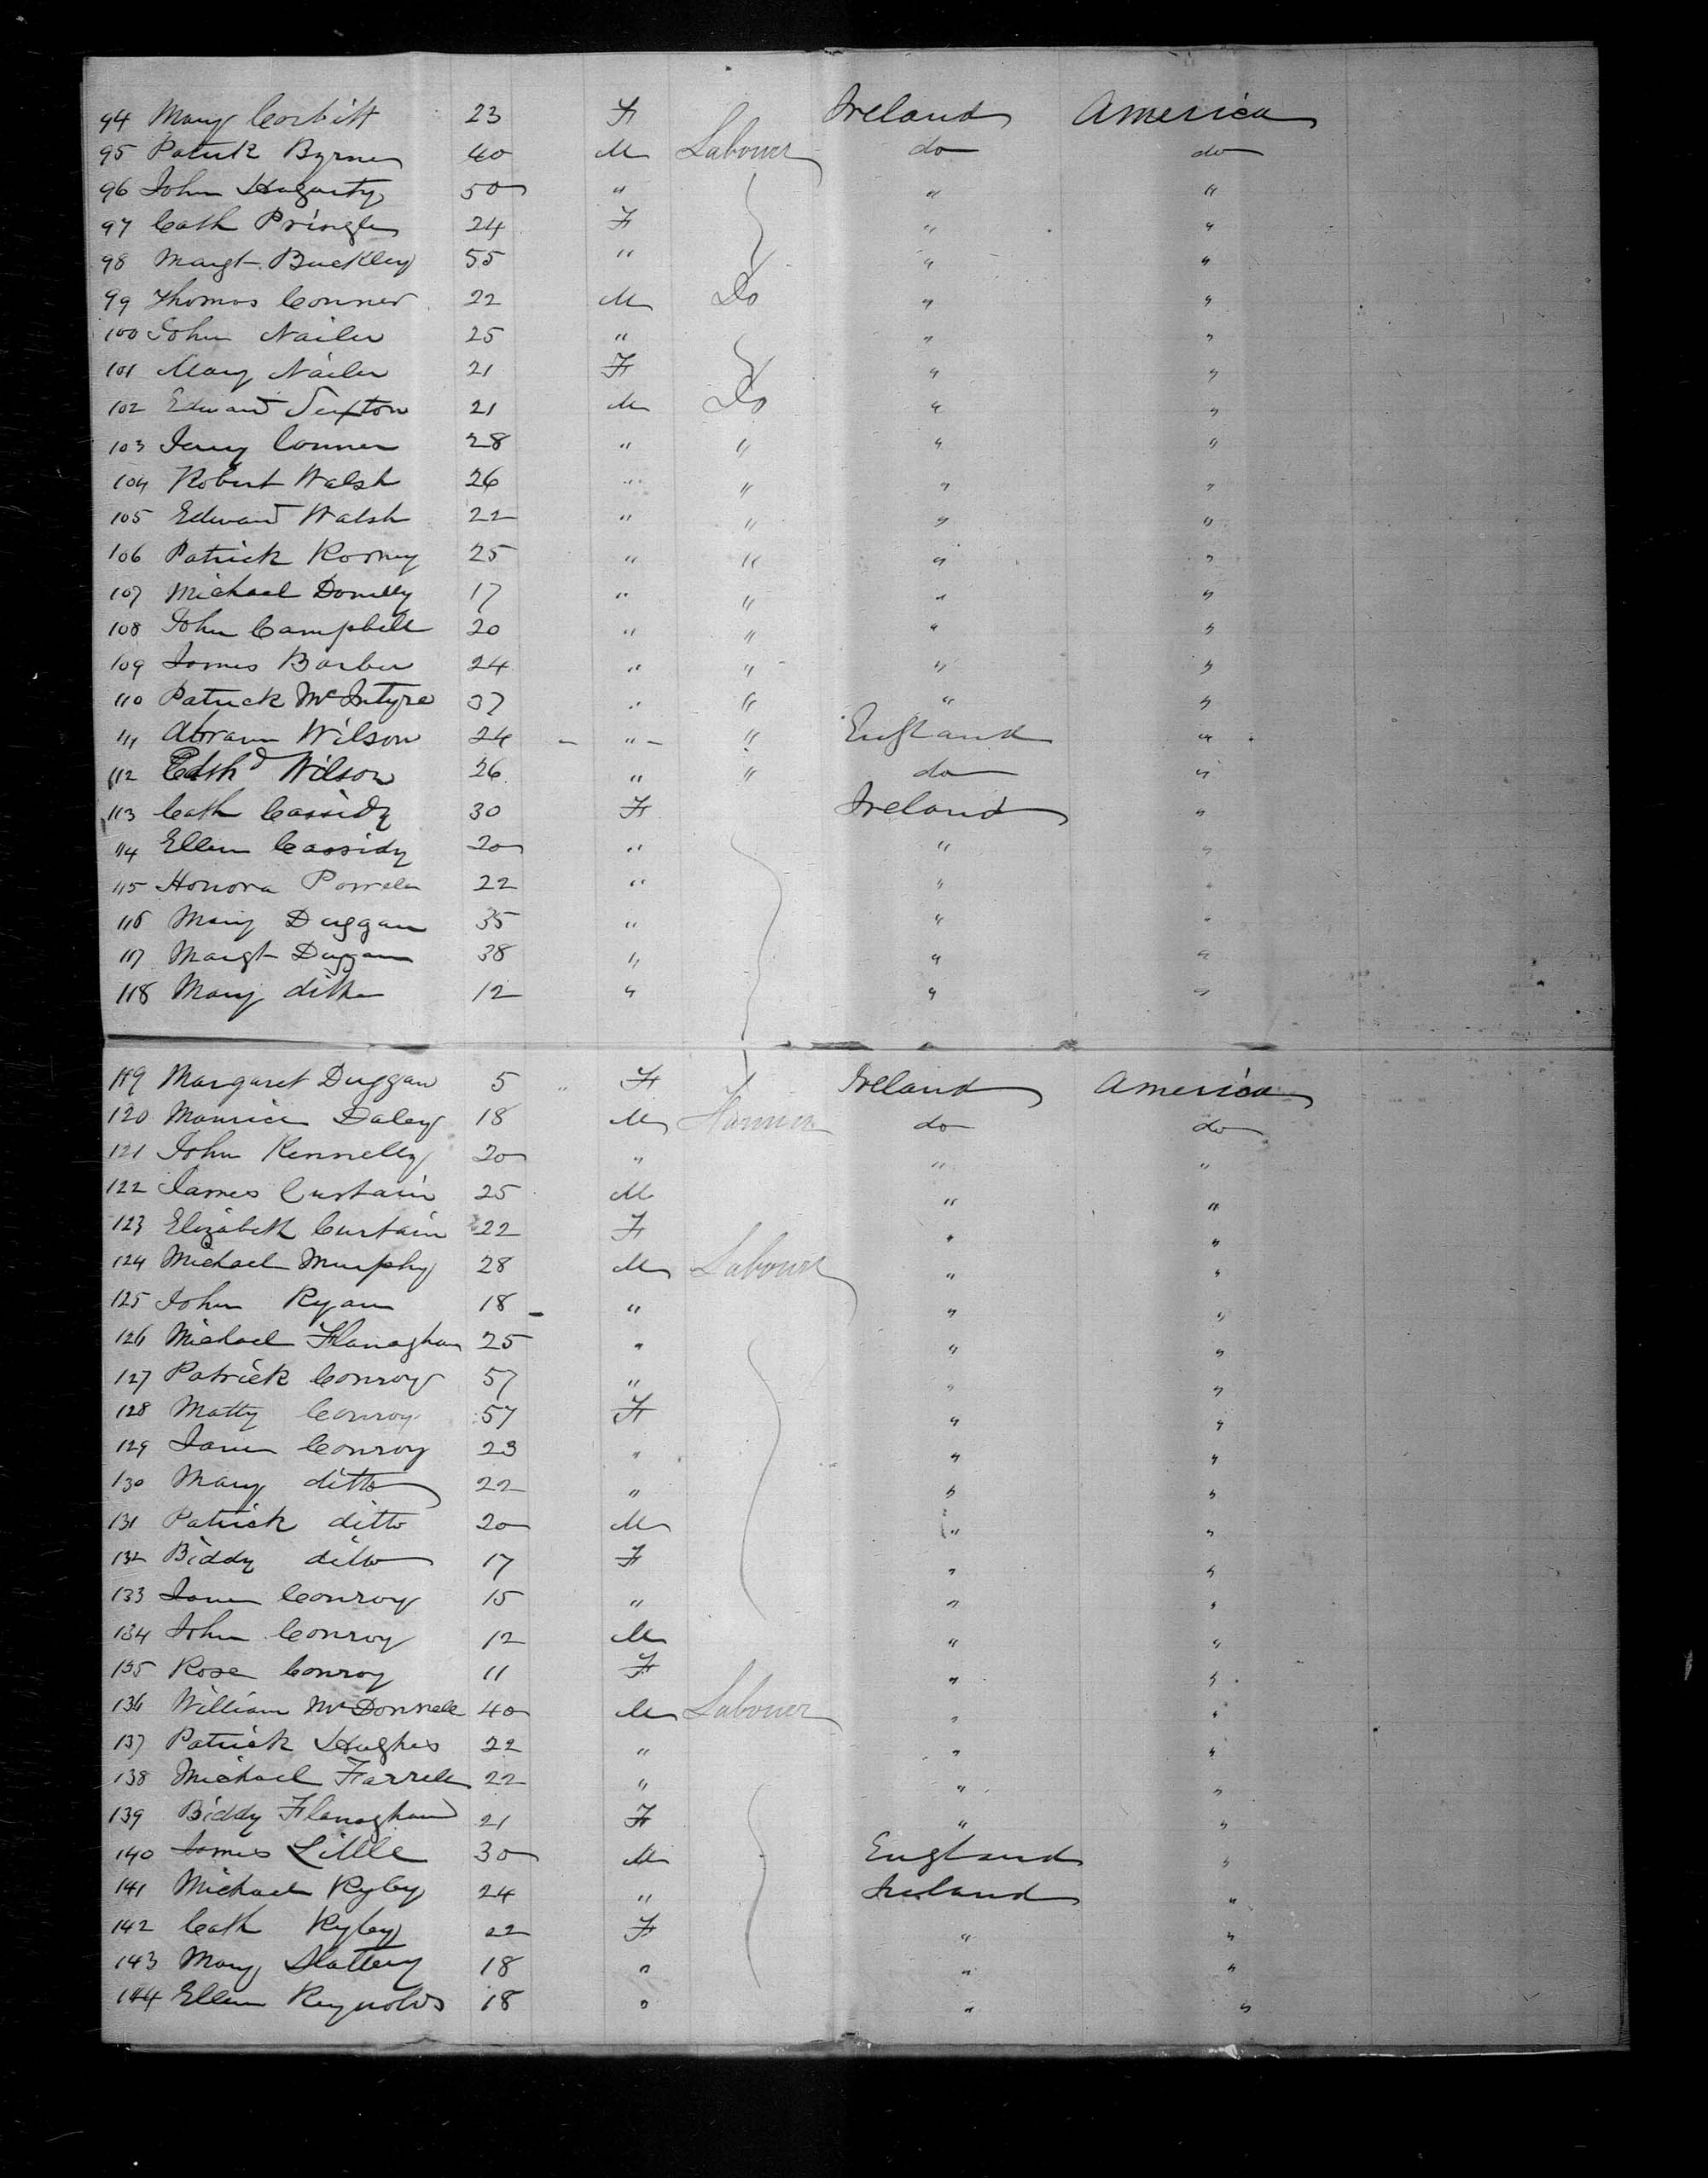 94 Mary Corbitt 23 F Ireland America
95 Patrick Byrne 40 M Labourer do do
96 John Hagarty 50 " " "
97 Cath Pringle 24 F " "
98 Margt. Buckley 55 " " "
99 Thomas Conner 22 M Do " "
100 John Nailer 25 " " "
101 Mary Nailer 21 F " "
102 Edward Sexton 21 M Do " "
103 Jerry Conner 28 " " " "
104 Robert Walsh 26 " " " "
105 Edward Walsh 22 " " " "
106 Patrick Rooney 25 " " " "
107 Michael Donelly 17 " " " "
108 John Campbell 20 " " " "
109 James Barber 24 " " " "
110 Patrick McIntyre 37 " " " "
111 Abram Wilson 24 - " - " England "
112 Wilson 26 " " do "
113 Cath Cassidy 30 F Ireland "
114 Ellen Cassidy 20 " " "
115 Honora 22 " " "
116 Mary Duggan 35 " " "
117 Margt Duggan 38 " " "
118 Mary ditto 12 " " "
119 Margaret Duggan 5 " F Ireland America
120 Maurice Daley 18 M Farmer do do
121 John Kennelly 20 " " "
122 James Curtain 25 M " "
123 Elizabeth Curtain 22 F " "
124 Michael Murphy 28 M Labourer " "
125 John Ryan 18 - " " "
126 Michael Flanaghan 25 " " "
127 Patrick Conroy 57 " " "
128 Matty Conroy 57 F " "
129 Jane Conroy 23 " " "
130 Mary ditto 22 " " "
131 Patrick ditto 20 M " "
132 Biddy ditto 17 F " "
133 Jane Conroy 15 " " "
134 John Conroy 12 M " "
135 Rose Conroy 11 F " "
136 William McDonnell 40 M Labourer " "
137 Patrick Hughes 22 " " "
138 Michael Farrell 22 " " "
139 Biddy Flanaghan 21 F " "
140 James Little 30 M England "
141 Michael Ryley 24 " Ireland "
142 Cath Ryley 22 F " "
143 Mary Slattery 18 " " "
144 Ellen Reynolds 18 " " "